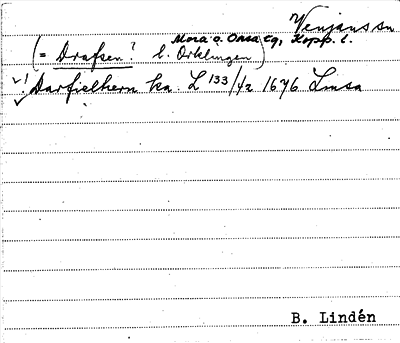 Venjans sn
Mora o. Orsa tg, Kopp. l.
(= Drafsen? l. Orklingen)
√! Darfielhern ka. L 133/42 1646 Lmsa
B. Lindén